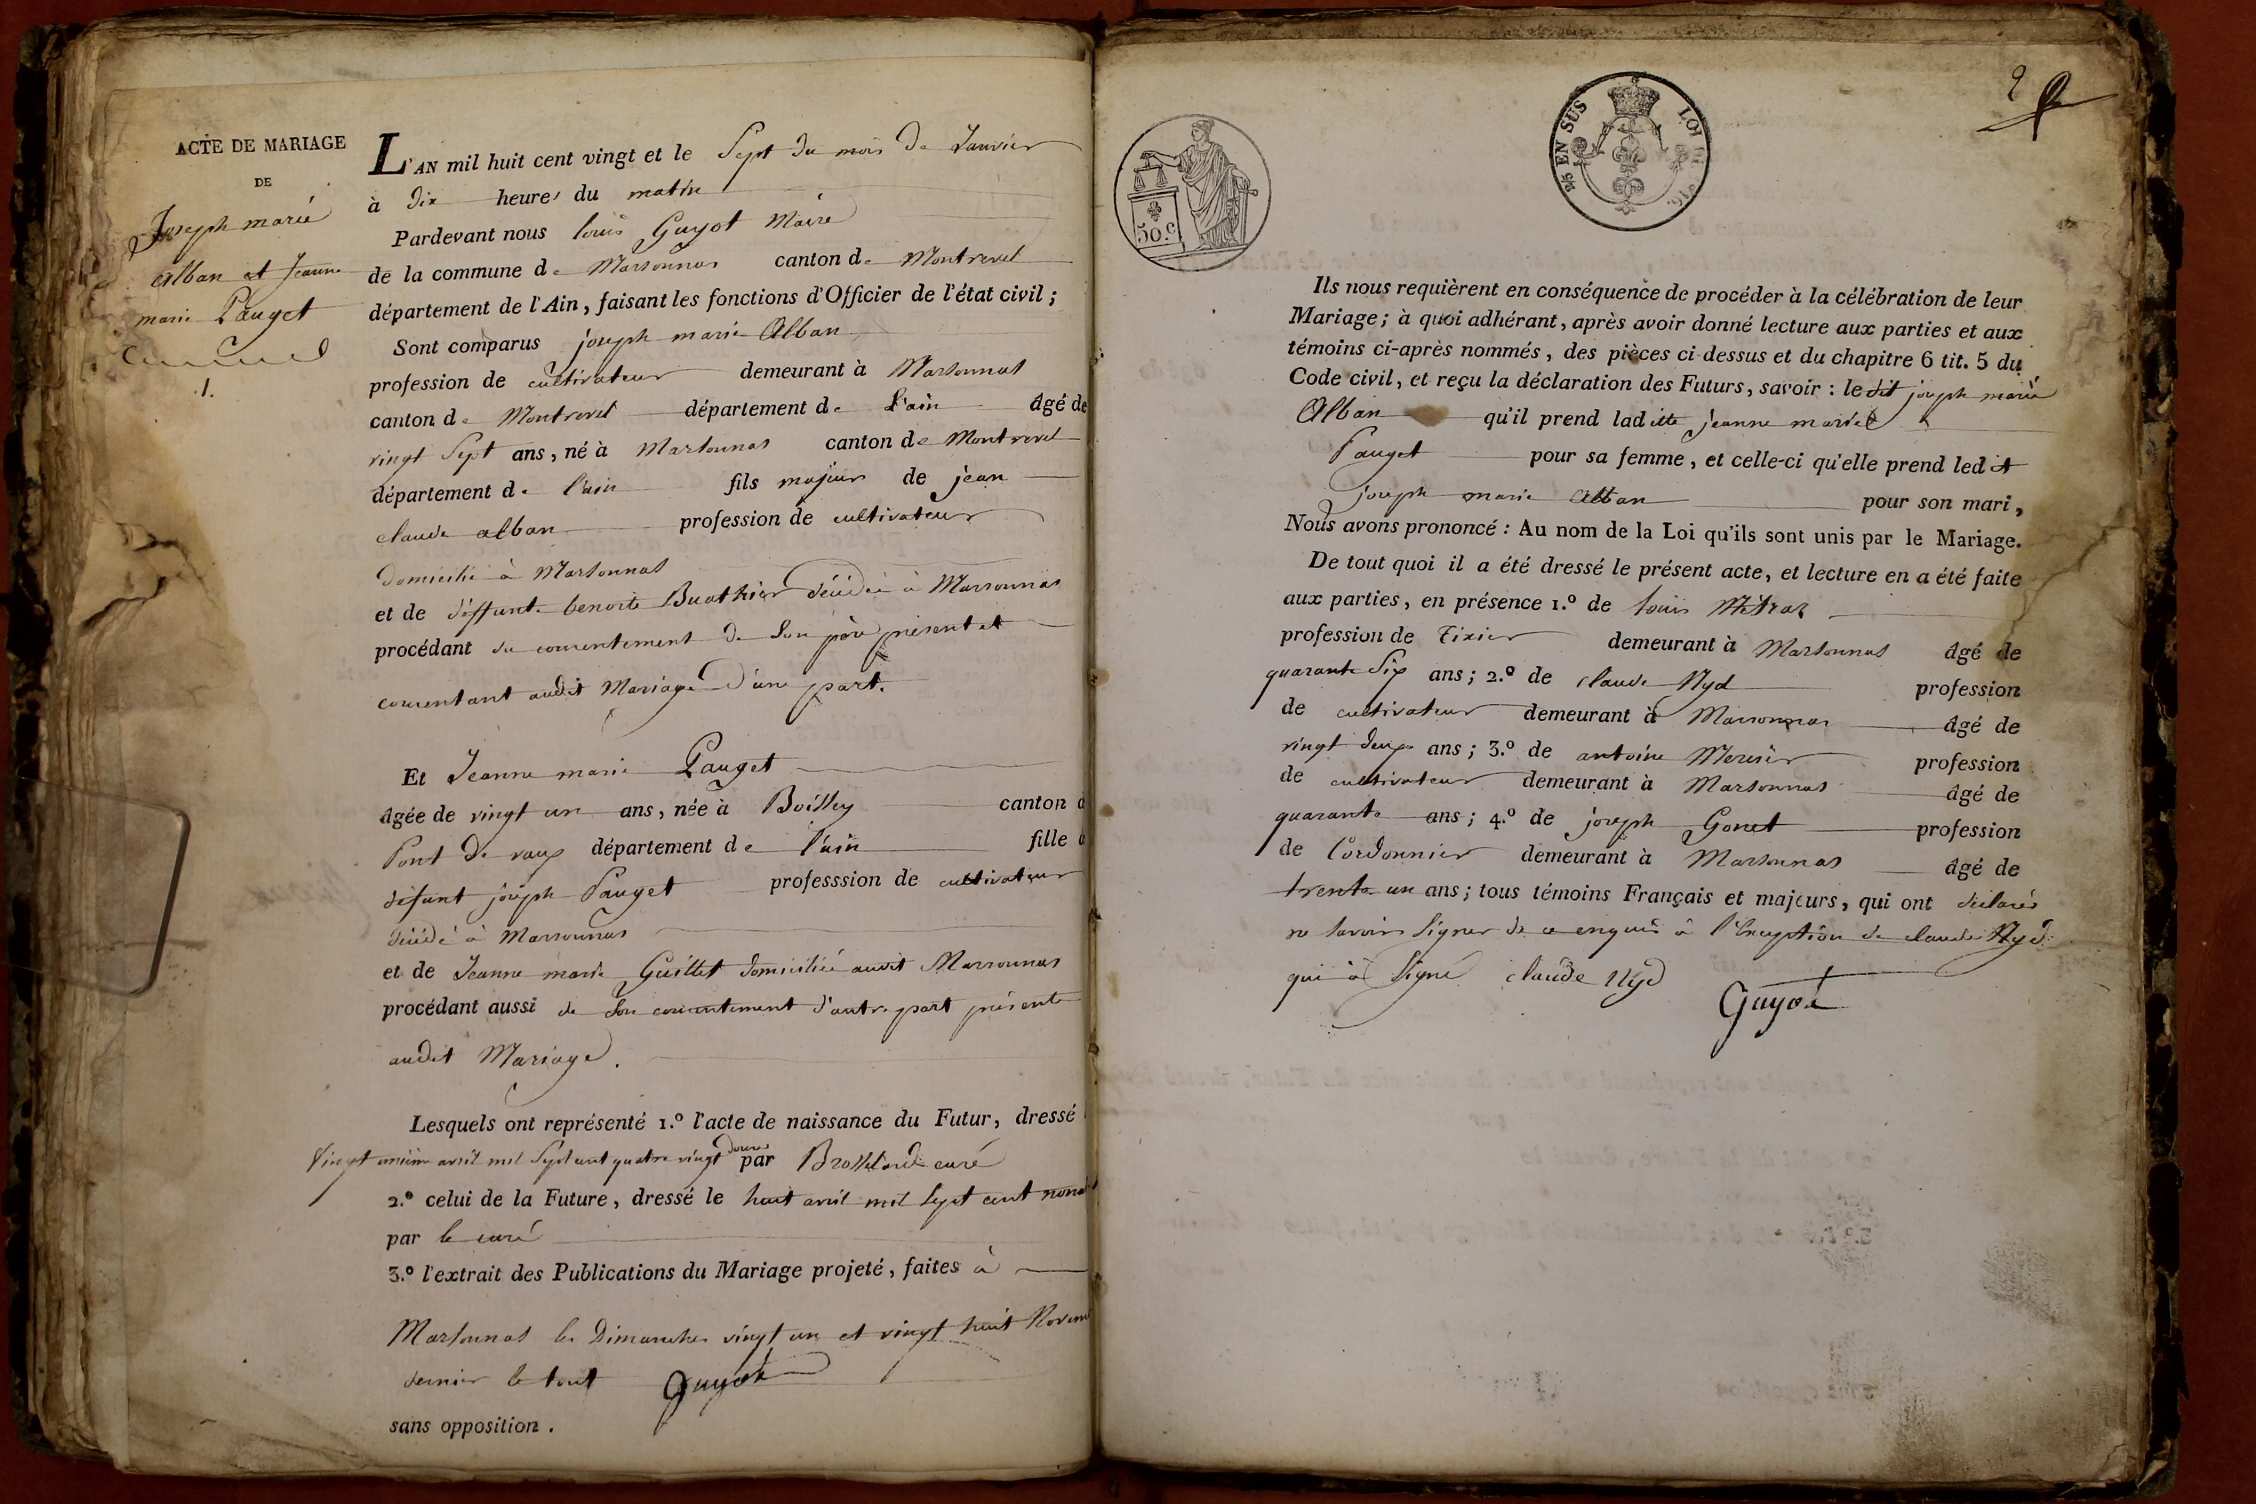 ACTE DE MARIAGE
DE
Joseph marie
Alban et Jeanne
marie Pauget
1.
L'AN mil huit cent vingt et le Sept du mois de Janvier
à dix heures du matin
Pardevant nous louis Guyot Maire
de la commune de Marsonnas canton de Montrevel
département de l'Ain, faisant les fonctions d'Officier de l'état civil;
Sont comparus joseph marie Alban
profession de cultivateur demeurant à Marsonnas
canton de Montrevel département de l'ain âgé de
vingt Sept ans, né à Marsonnas canton de Montrevel
département de l'ain fils majeur de jean
claude alban profession de cultivateur
domicilié à Marsonnas
et de déffunte benoite Buathier décédée à Marsonnas
procédant du consentement de Son père présent et
consentant audit Mariage D'une part.
Et Jeanne marie Pauget
âgée de vingt un ans, née à Boissey canton d
Pont de vaux département de l'ain fille d
défunt joseph Pauget professsion de cultivateur
décédé à Marsonnas
et de Jeanne marie Guillet domiciliée audit Marsonnas
procédant aussi de Son consentement d'autre part présente
audit Mariage.
Lesquels ont représenté 1.º l'acte de naissance du Futur, dressé
vingt unième avril mil Sept cent quatre vingt douze par Brossard curé
2.º celui de la Future, dressé le huit avril mil Sept cent nona
par le curé
3.º l'extrait des Publications du Mariage projeté, faites à
Marsonnas les Dimanches vingt un et vingt huit Novem
dernier le tout Guyot
sans opposition.
2
50.c
EN SUS LOI
Ils nous requièrent en conséquence de procéder à la célébration de leur
Mariage; à quoi adhérant, après avoir donné lecture aux parties et aux
témoins ci-après nommés, des pièces ci-dessus et du chapitre 6 tit. 5 du
Code civil, et reçu la déclaration des Futurs, savoir: le dit joseph marie
Alban qu'il prend ladite jeanne marie
Pauget pour sa femme, et celle-ci qu'elle prend ledit
joseph marie alban pour son mari,
Nous avons prononcé: Au nom de la Loi qu'ils sont unis par le Mariage.
De tout quoi il a été dressé le présent acte, et lecture en a été faite
aux parties, en présence 1.º de louis Mitraz
profession de Tixier demeurant à Marsonnas âgé de
quarante Six ans; 2.º de claude Nyd profession
de cultivateur demeurant à Marsonnas âgé de
vingt deux ans; 3.º de antoine Mercier profession
de cultivateur demeurant à Marsonnas âgé de
quarante ans; 4.º de joseph Gonet profession
de Cordonnier demeurant à Marsonnas âgé de
trente un ans; tous témoins Français et majeurs, qui ont déclarés
ne Savoir Signer de ce enquis à l'Exception de claude Nyd
qui à Signé claude Nyd
Guyot